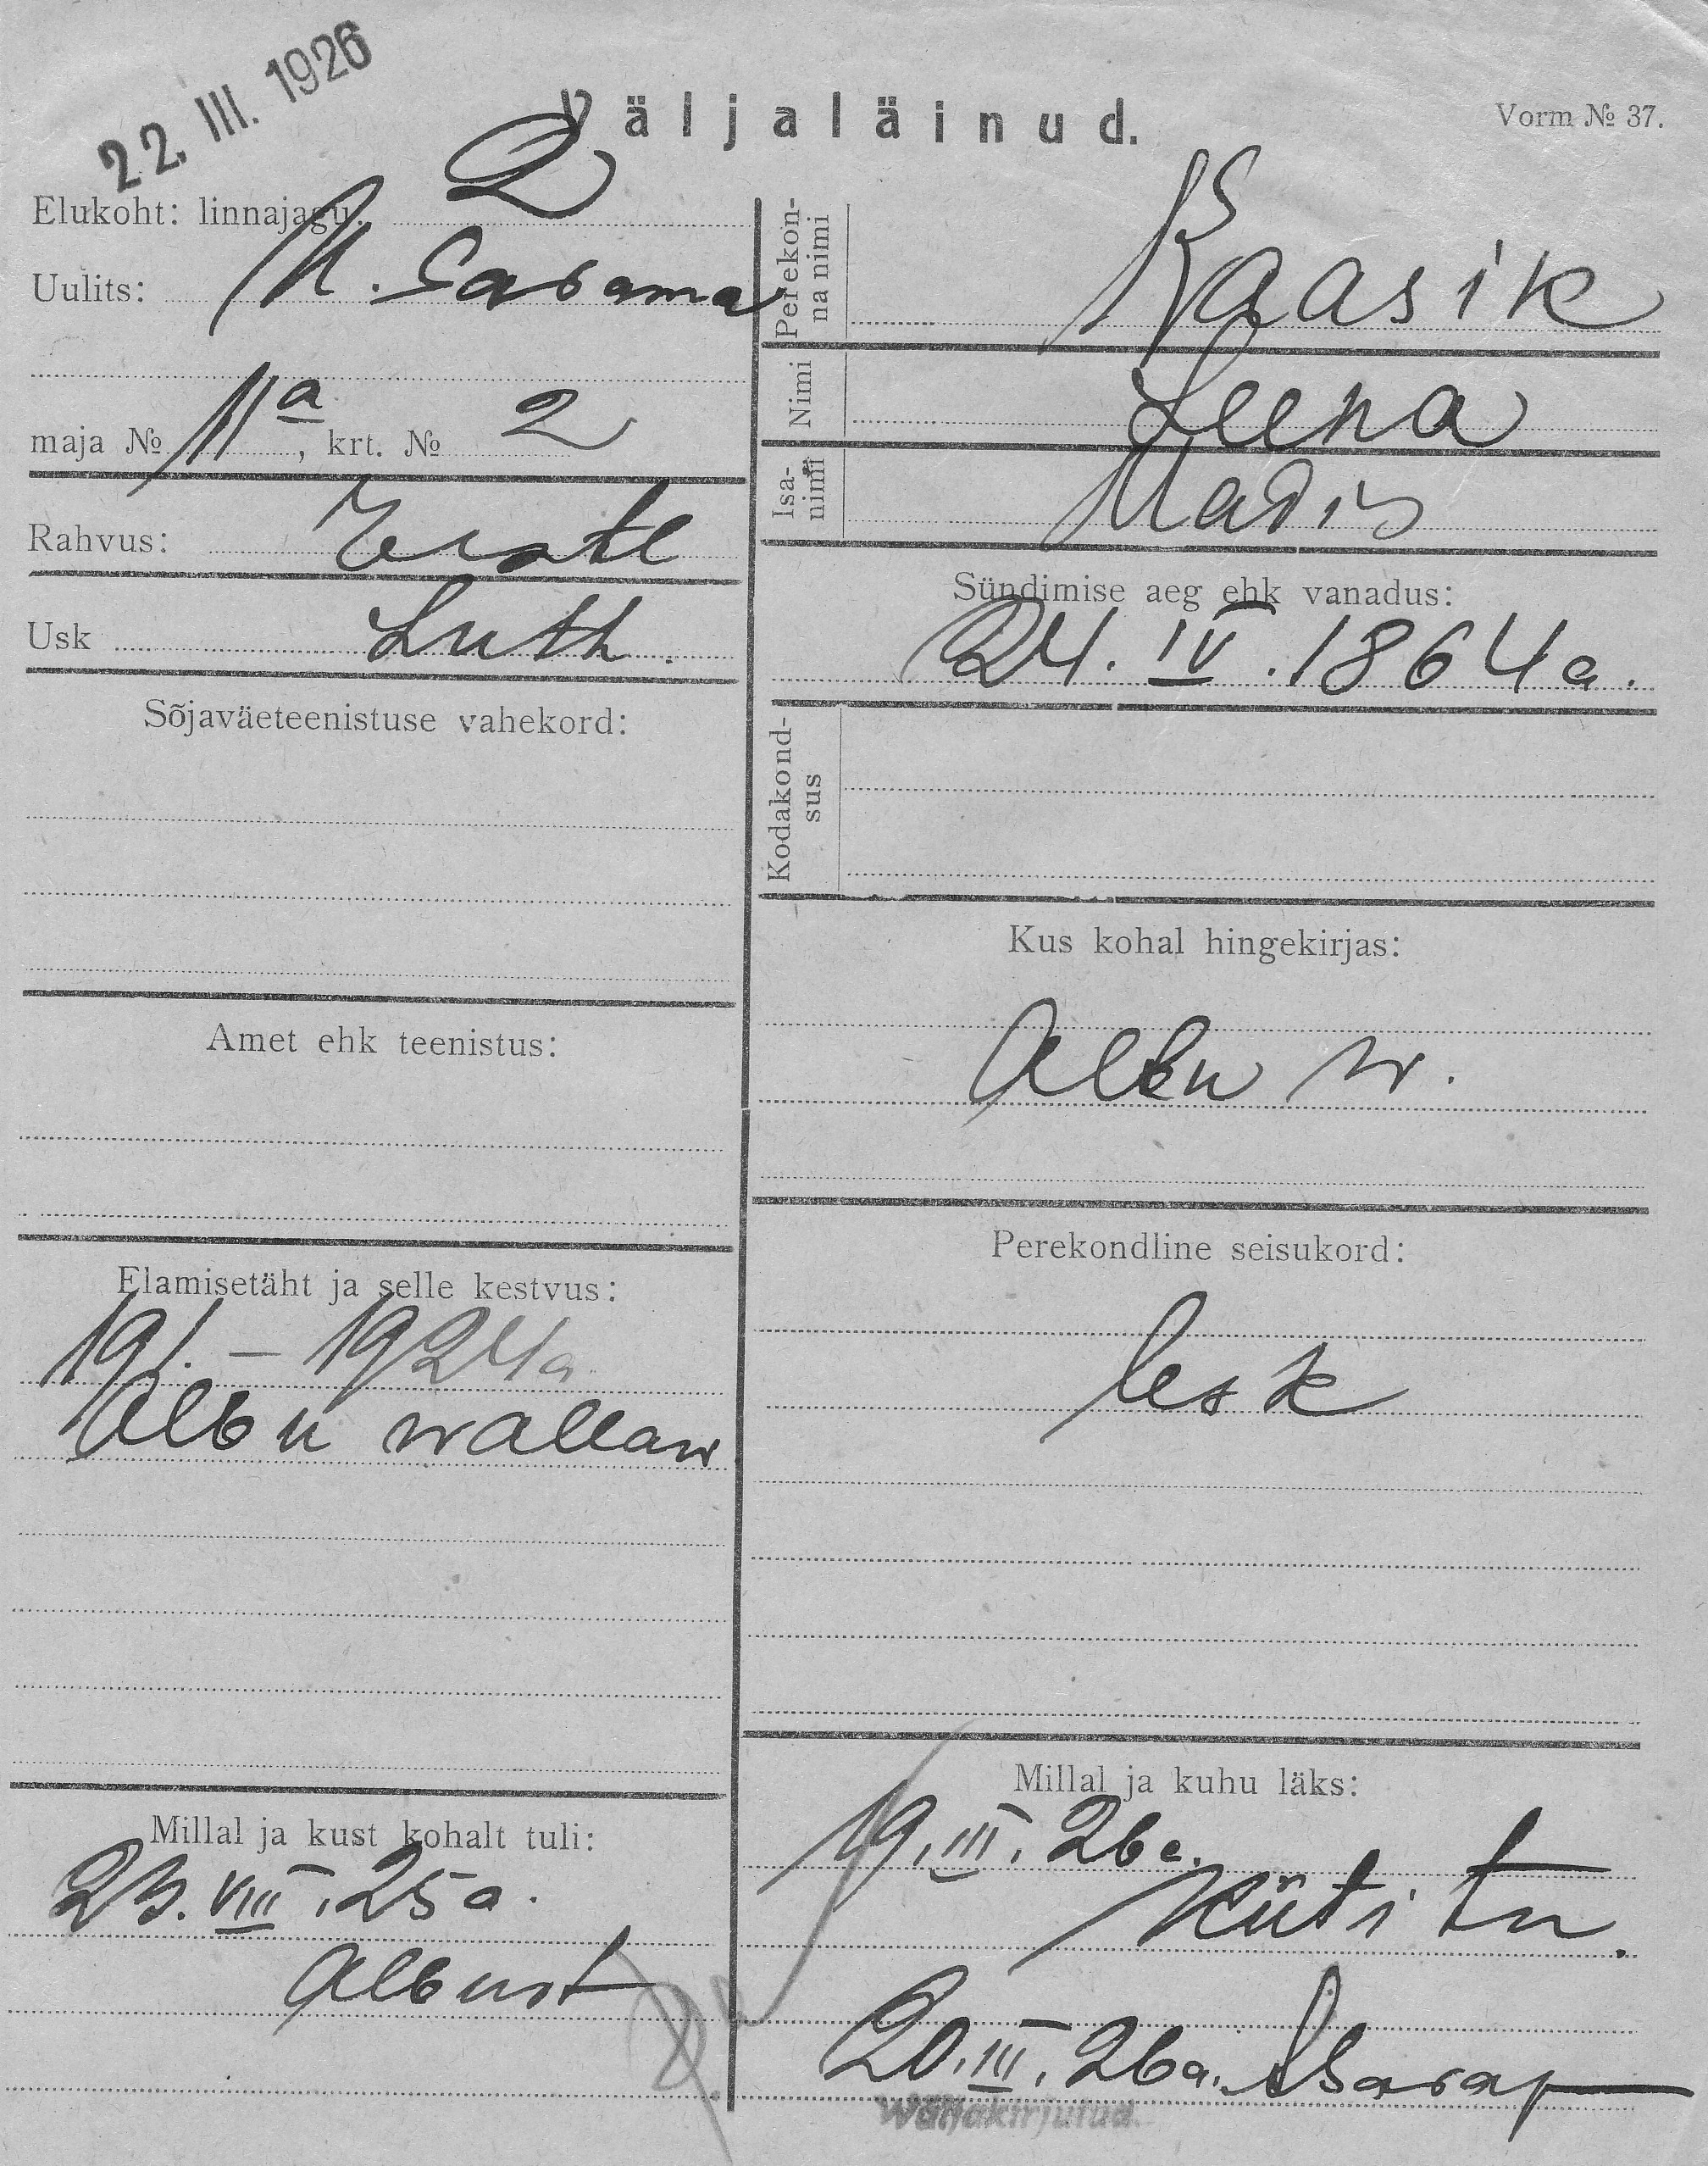 22. III. 1926
Väljaläinud.
Vorm № 37.
Elukoht: linnajagu. 2
Uulits:
maja № 11a, krt. № 2
Rahvus: Eestl
Usk Luth.
Sõjaväeteenistuse vahekord:
Amet ehk teenistus:
Elamisetäht ja selle kestvus:
191. – 1924a
Albu wallaw
Millal ja kust kohalt tuli:
23. VIII. 25a.
Albust
Perekonna nimi Raasik
Nimi Leena
Isa-nimi Madis
Sündimise aeg ehk vanadus:
24. IV. 1864a.
Kodakond-sus
Kus kohal hingekirjas:
Albu w.
Perekondline seisukord:
lesk
Millal ja kuhu läks:
19. III. 26a.
Küti tn.
20. III. 26a.
Wäljakirjutud.